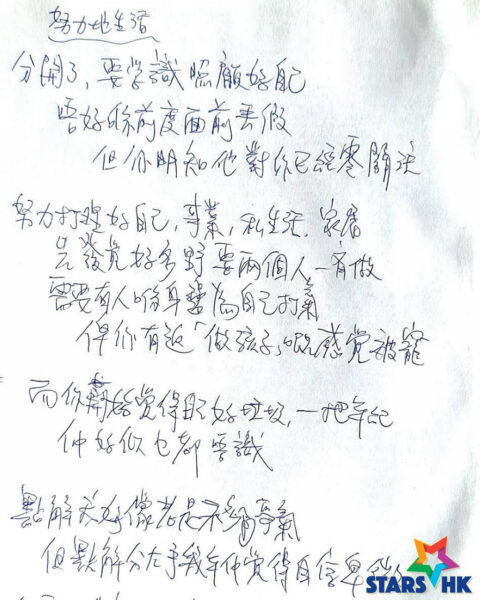 努力地生活
分開了，要學識照顧好自己
唔好係前度面前丟假
但你明知他對你已經零關注
努力打理好自己，事業，私生活，家居
先發覺好多野要兩個人一齊做
需要有人喺身邊為自己打氣
俾你有返「做孩子」嘅感覺被寵
而你開始覺得自己好垃圾，一把年紀
仲好似乜都唔識
點解天好像老是不爭氣
但點解分左手幾年仲覺得自信卑
STARS HK